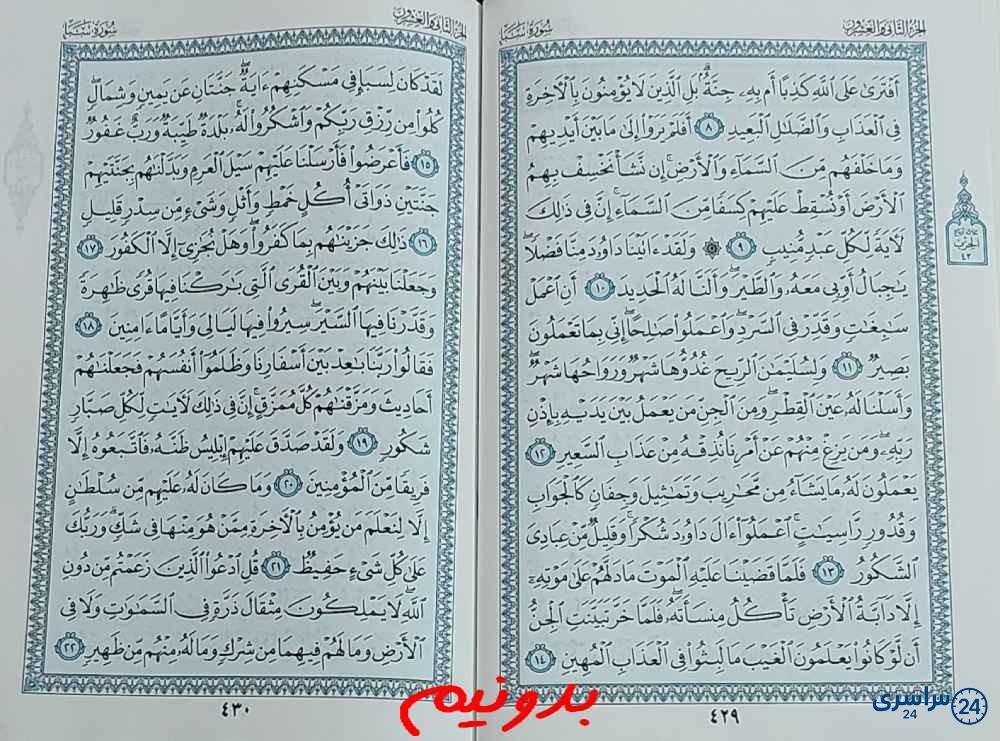 الجزء الثاني والعشرون
سورة سبأ
أَفْتَرَىٰ عَلَى ٱللَّهِ كَذِبًا أَم بِهِۦ جِنَّةٌۢ ۗ بَلِ ٱلَّذِينَ لَا يُؤْمِنُونَ بِٱلْـَٔاخِرَةِ
فِى ٱلْعَذَابِ وَٱلضَّلَـٰلِ ٱلْبَعِيدِ ٨ أَفَلَمْ يَرَوْا۟ إِلَىٰ مَا بَيْنَ أَيْدِيهِمْ
وَمَا خَلْفَهُم مِّنَ ٱلسَّمَآءِ وَٱلْأَرْضِ ۚ إِن نَّشَأْ نَخْسِفْ بِهِمُ
ٱلْأَرْضَ أَوْ نُسْقِطْ عَلَيْهِمْ كِسَفًا مِّنَ ٱلسَّمَآءِ ۚ إِنَّ فِى ذَٰلِكَ
لَـَٔايَةً لِّكُلِّ عَبْدٍ مُّنِيبٍ ٩ ۞ وَلَقَدْ ءَاتَيْنَا دَاوُۥدَ مِنَّا فَضْلًا ۖ
يَـٰجِبَالُ أَوِّبِى مَعَهُۥ وَٱلطَّيْرَ ۖ وَأَلَنَّا لَهُ ٱلْحَدِيدَ ١٠ أَنِ ٱعْمَلْ
سَـٰبِغَـٰتٍ وَقَدِّرْ فِى ٱلسَّرْدِ ۖ وَٱعْمَلُوا۟ صَـٰلِحًا ۖ إِنِّى بِمَا تَعْمَلُونَ
بَصِيرٌ ١١ وَلِسُلَيْمَـٰنَ ٱلرِّيحَ غُدُوُّهَا شَهْرٌ وَرَوَاحُهَا شَهْرٌ ۖ
وَأَسَلْنَا لَهُۥ عَيْنَ ٱلْقِطْرِ ۖ وَمِنَ ٱلْجِنِّ مَن يَعْمَلُ بَيْنَ يَدَيْهِ بِإِذْنِ
رَبِّهِۦ ۖ وَمَن يَزِغْ مِنْهُمْ عَنْ أَمْرِنَا نُذِقْهُ مِنْ عَذَابِ ٱلسَّعِيرِ ١٢
يَعْمَلُونَ لَهُۥ مَا يَشَآءُ مِن مَّحَـٰرِيبَ وَتَمَـٰثِيلَ وَجِفَانٍ كَٱلْجَوَابِ
وَقُدُورٍ رَّاسِيَـٰتٍ ۚ ٱعْمَلُوٓا۟ ءَالَ دَاوُۥدَ شُكْرًا ۚ وَقَلِيلٌ مِّنْ عِبَادِىَ
ٱلشَّكُورُ ١٣ فَلَمَّا قَضَيْنَا عَلَيْهِ ٱلْمَوْتَ مَا دَلَّهُمْ عَلَىٰ مَوْتِهِۦٓ
إِلَّا دَآبَّةُ ٱلْأَرْضِ تَأْكُلُ مِنسَأَتَهُۥ ۖ فَلَمَّا خَرَّ تَبَيَّنَتِ ٱلْجِنُّ
أَن لَّوْ كَانُوا۟ يَعْلَمُونَ ٱلْغَيْبَ مَا لَبِثُوا۟ فِى ٱلْعَذَابِ ٱلْمُهِينِ ١٤
الحزب
٤٣
٤٢٩
الجزء الثاني والعشرون
سورة سبأ
لَقَدْ كَانَ لِسَبَإٍ فِى مَسْكَنِهِمْ ءَايَةٌ ۖ جَنَّتَانِ عَن يَمِينٍ وَشِمَالٍ ۖ
كُلُوا۟ مِن رِّزْقِ رَبِّكُمْ وَٱشْكُرُوا۟ لَهُۥ ۚ بَلْدَةٌ طَيِّبَةٌ وَرَبٌّ غَفُورٌ
١٥ فَأَعْرَضُوا۟ فَأَرْسَلْنَا عَلَيْهِمْ سَيْلَ ٱلْعَرِمِ وَبَدَّلْنَـٰهُم بِجَنَّتَيْهِمْ
جَنَّتَيْنِ ذَوَاتَىْ أُكُلٍ خَمْطٍ وَأَثْلٍ وَشَىْءٍ مِّن سِدْرٍ قَلِيلٍ
١٦ ذَٰلِكَ جَزَيْنَـٰهُم بِمَا كَفَرُوا۟ ۖ وَهَلْ نُجَـٰزِىٓ إِلَّا ٱلْكَفُورَ ١٧
وَجَعَلْنَا بَيْنَهُمْ وَبَيْنَ ٱلْقُرَى ٱلَّتِى بَـٰرَكْنَا فِيهَا قُرًى ظَـٰهِرَةً
وَقَدَّرْنَا فِيهَا ٱلسَّيْرَ ۖ سِيرُوا۟ فِيهَا لَيَالِىَ وَأَيَّامًا ءَامِنِينَ ١٨
فَقَالُوا۟ رَبَّنَا بَـٰعِدْ بَيْنَ أَسْفَارِنَا وَظَلَمُوٓا۟ أَنفُسَهُمْ فَجَعَلْنَـٰهُمْ
أَحَادِيثَ وَمَزَّقْنَـٰهُمْ كُلَّ مُمَزَّقٍ ۚ إِنَّ فِى ذَٰلِكَ لَـَٔايَـٰتٍ لِّكُلِّ صَبَّارٍ
شَكُورٍ ١٩ وَلَقَدْ صَدَّقَ عَلَيْهِمْ إِبْلِيسُ ظَنَّهُۥ فَٱتَّبَعُوهُ إِلَّا
فَرِيقًا مِّنَ ٱلْمُؤْمِنِينَ ٢٠ وَمَا كَانَ لَهُۥ عَلَيْهِم مِّن سُلْطَـٰنٍ
إِلَّا لِنَعْلَمَ مَن يُؤْمِنُ بِٱلْـَٔاخِرَةِ مِمَّنْ هُوَ مِنْهَا فِى شَكٍّ ۗ وَرَبُّكَ
عَلَىٰ كُلِّ شَىْءٍ حَفِيظٌ ٢١ قُلِ ٱدْعُوا۟ ٱلَّذِينَ زَعَمْتُم مِّن دُونِ
ٱللَّهِ ۖ لَا يَمْلِكُونَ مِثْقَالَ ذَرَّةٍ فِى ٱلسَّمَـٰوَٰتِ وَلَا فِى
ٱلْأَرْضِ وَمَا لَهُمْ فِيهِمَا مِن شِرْكٍ وَمَا لَهُۥ مِنْهُم مِّن ظَهِيرٍ ٢٢
٤٣٠
بدونیم
سراسری
24
24